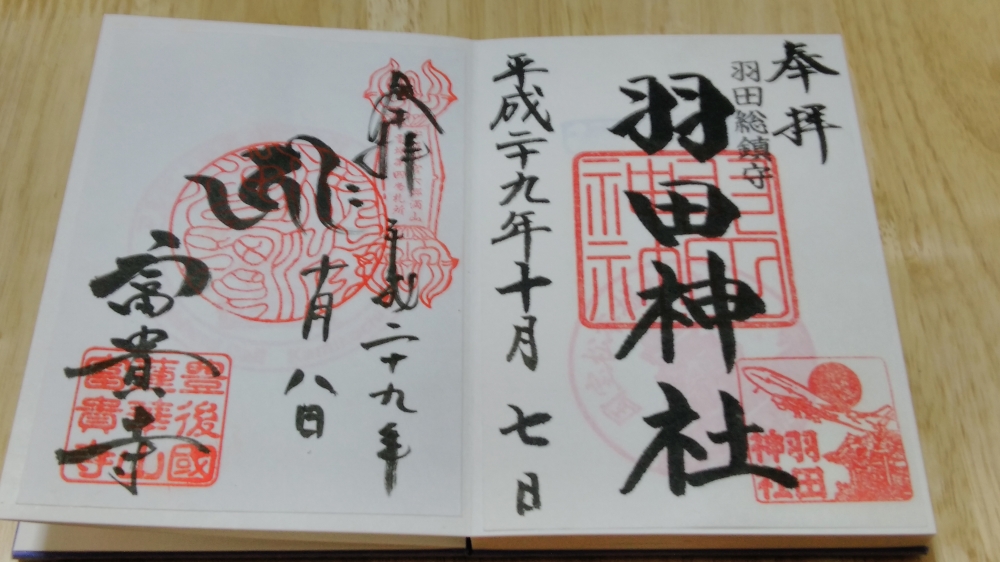 奉拝
羽田総鎮守
羽田神社
平成二十九年十月七日
羽田
神社
奉拝
平成二十九年
十月八日
富貴寺
豊後國
蓮華山
富貴寺